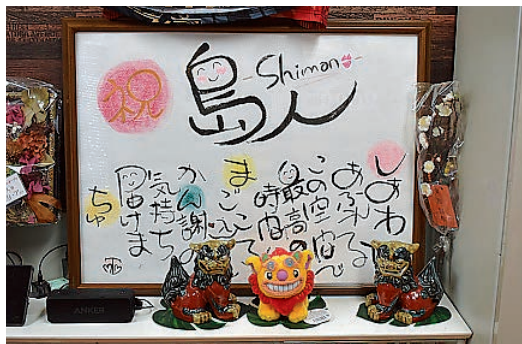 祝
島人
Shiman
しあわ
あふれ
この空間
最高の
時間
まごころ
かん謝の
気持ち
届けま
ちゅ
ANKER